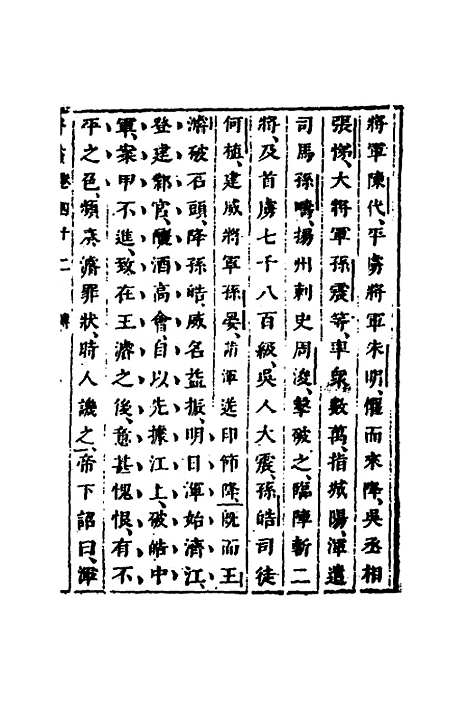 將軍陳代、平虜將軍朱明、懼而來降、吳丞相
張悌、大將軍孫震等、率衆數萬、指城陽、渾遣
司馬孫疇、揚州刺史周浚、擊破之、臨陣斬二
將、及首虜七千八百級、吳人大震、孫皓司徒
何植、建威將軍孫晏、詣渾送印節降、既而王
濬破石頭、降孫皓、威名益振、明日渾始濟江、
登建鄴官、釃酒高會、自以先據江上、破皓中
軍、案甲不進、致在王濬之後、意甚愧恨、有不
平之色、頻奏濬罪狀、時人譏之、帝下詔曰、渾
晉書卷四十二 傳